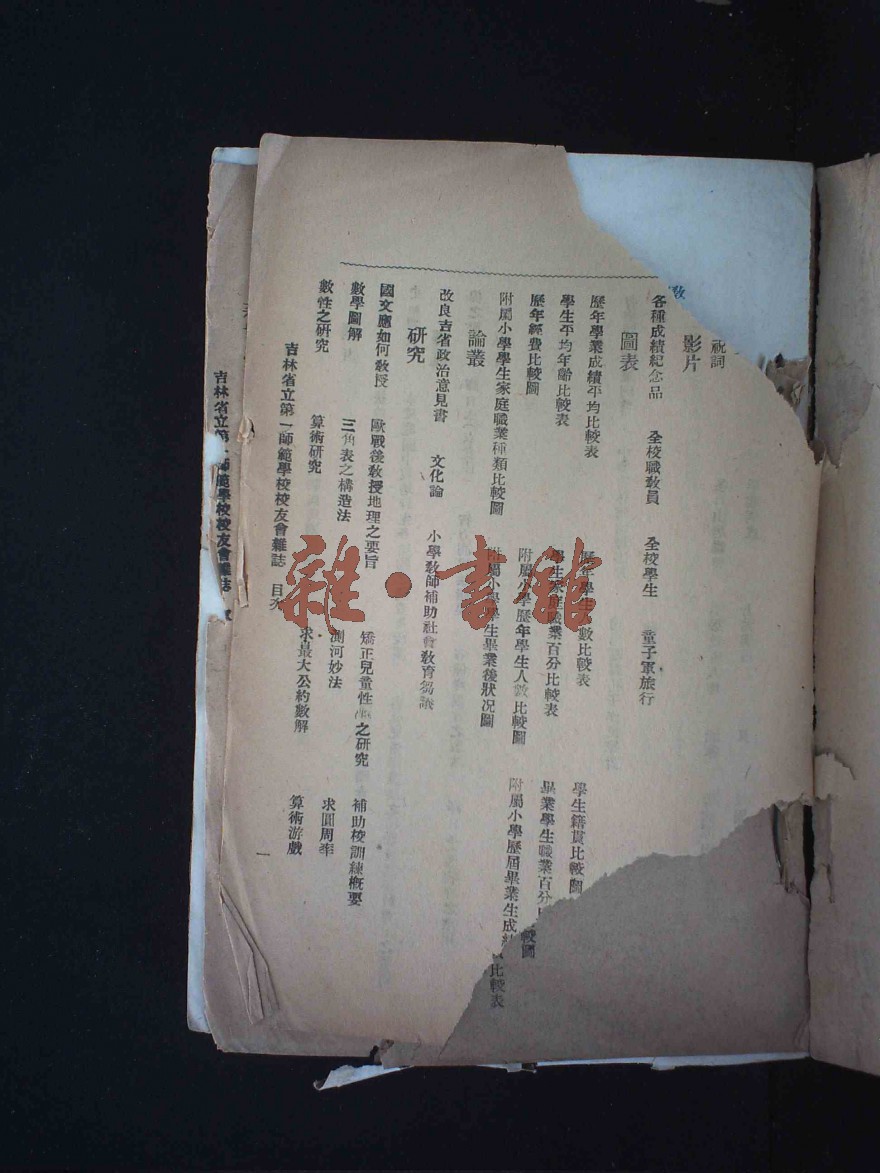 祝詞
影片
各種成績紀念品 全校職敎員 全校學生 童子軍旅行
圖表
歷年學業成績平均比較表 歷年學生人數比較表 學生籍貫比較圖
學生平均年齡比較表 學生家庭職業百分比較表 畢業學生職業百分比較圖
歷年經費比較圖 附屬小學歷年學生人數比較圖 附屬小學歷屆畢業生成績比較表
附屬小學學生家庭職業種類比較圖 附屬小學學生畢業後狀況圖
論叢
改良吉省政治意見書 文化論 小學敎師補助社會敎育芻議
研究
國文應如何敎授 歐戰後敎授地理之要旨 矯正兒童性之研究 補助校訓練概要
數學圖解 三角表之構造法 測河妙法 求圓周率
數性之研究 算術研究 求最大公約數解 算術游戲
吉林省立第一師範學校校友會雜誌 目次 一
吉林省立第一師範學校校友會雜誌
敎
雜·書館